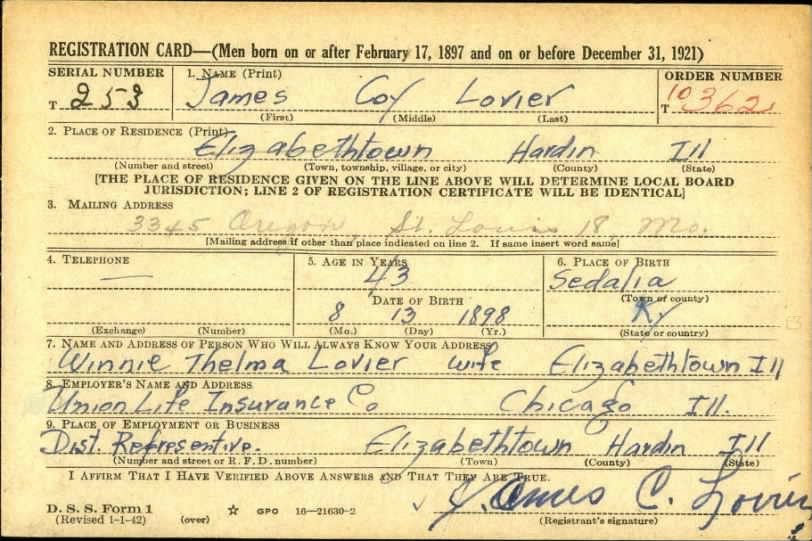 REGISTRATION CARD—(Men born on or after February 17, 1897 and on or before December 31, 1921)
SERIAL NUMBER 1. NAME (Print) ORDER NUMBER
T 253 James Coy Lovier T 10362
(First) (Middle) (Last)
2. PLACE OF RESIDENCE (Print)
Elizabethtown Hardin Ill
(Number and street) (Town, township, village, or city) (County) (State)
[THE PLACE OF RESIDENCE GIVEN ON THE LINE ABOVE WILL DETERMINE LOCAL BOARD
JURISDICTION; LINE 2 OF REGISTRATION CERTIFICATE WILL BE IDENTICAL]
3. MAILING ADDRESS
3345 Oregon, St. Louis 18, Mo.
[Mailing address if other than place indicated on line 2. If same insert word same]
4. TELEPHONE 5. AGE IN YEARS 6. PLACE OF BIRTH
— 43 Sedalia
DATE OF BIRTH (Town or county)
8 13 1898 Ky
(Exchange) (Number) (Mo.) (Day) (Yr.) (State or country)
7. NAME AND ADDRESS OF PERSON WHO WILL ALWAYS KNOW YOUR ADDRESS
Winnie Thelma Lovier wife Elizabethtown Ill
8. EMPLOYER'S NAME AND ADDRESS
Union Life Insurance Co Chicago Ill.
9. PLACE OF EMPLOYMENT OR BUSINESS
Dist. Represenive. Elizabethtown Hardin Ill
(Number and street or R. F. D. number) (Town) (County) (State)
I AFFIRM THAT I HAVE VERIFIED ABOVE ANSWERS AND THAT THEY ARE TRUE.
D. S. S. Form 1 James C. Lovier
(Revised 1-1-42) (over) ☆ GPO 16—21630-2 (Registrant's signature)